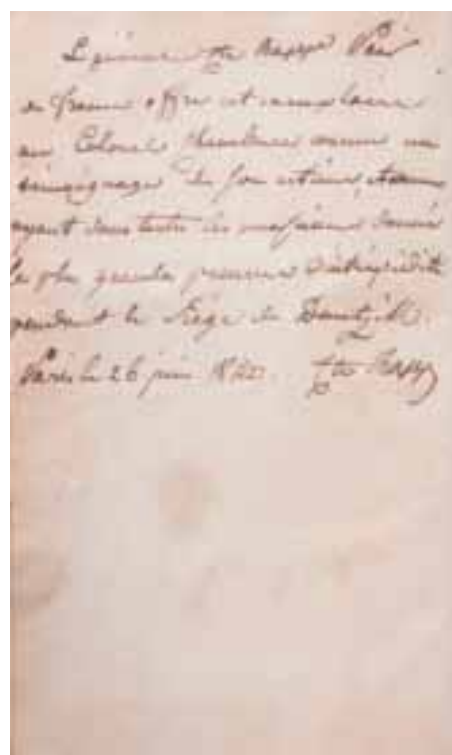 Le général Cte Rapp Pair
de france offre cet exemplaire
au Colonel comme un
témoignage de son estime,
ayant dans toutes les occasions donné
la plus grande preuve d'intrépidité
pendant le Siège de Dantzick.
Paris le 26 juin 1820. Cte Rapp